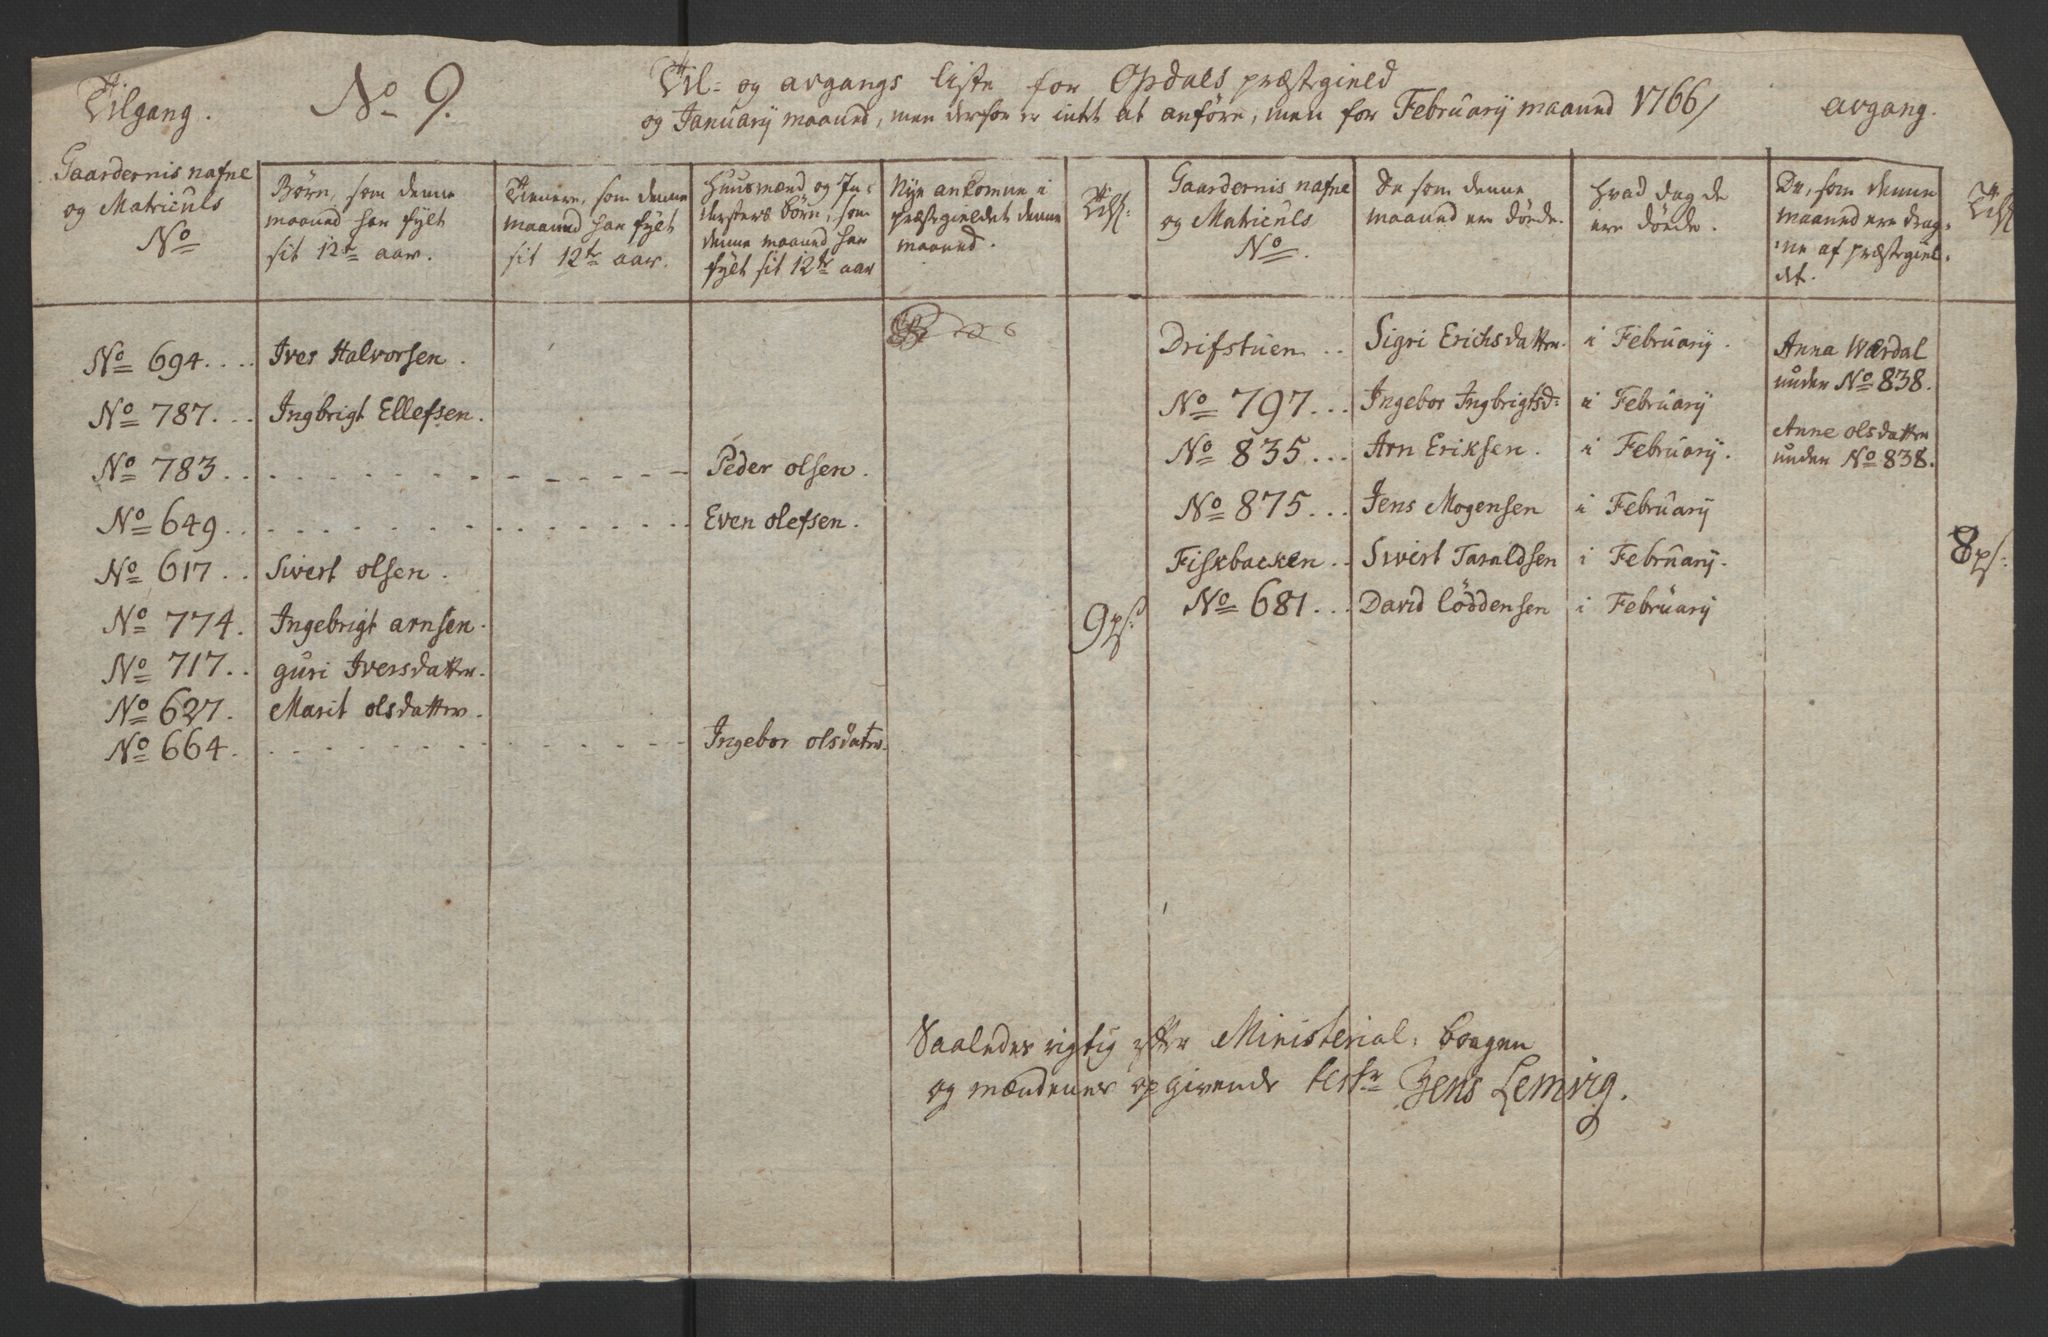 Tilgang.
No 9.
Til- og avgangs liste for Opdals præstgield
og January maaned, men derfor er intet at anføre, men for February maaned 1766/
avgang.
Gaardernis nafne
og Matriculs
No
Børn, som denne
maaned har fylt
sit 12te aar.
Tienere, som denne
maaned har fylt
sit 12te aar.
Huusmænd og In-
dersters børn, som
denne maaned har
fylt sit 12te aar
Nye ankomne i
præstgieldet denne
maaned.
Til
Gaardernis nafne
og Matriculs
No.
De som denne
maaned ere døde.
hvad dag de
ere døde.
De, som denne
maaned ere drag-
ne af præstegiel-
det.
No 694.... Iver Halvorsen.
No 787... Ingbrigt Ellefsen.
No 783.. Peder olsen.
No 649.. Even olefsen.
No 617.. Sivert olsen.
No 774. Ingebrigt arnsen.
No 717.. guri Iversdatter.
No 627. Marit olsdatter.
No 664. Ingebor olsdatr.
9 ps:
Drifstuen.. Sigri Erichsdatter. i February.
No 797... Ingebor Ingbrigtsd: i February
No 835... Arn Eriksen. i February.
No 875... Jens Mogensen i February
Fiskbacken.. Sivert Taraldsen i February.
No 681... David Løddensen i February
Anna Værdal
under No 838.
Anne olsdatter
under No 838.
8 ps:
Saaledes rigtig efter Ministerial-bogen
og mændenes opgivende test:r Jens Lemvig.